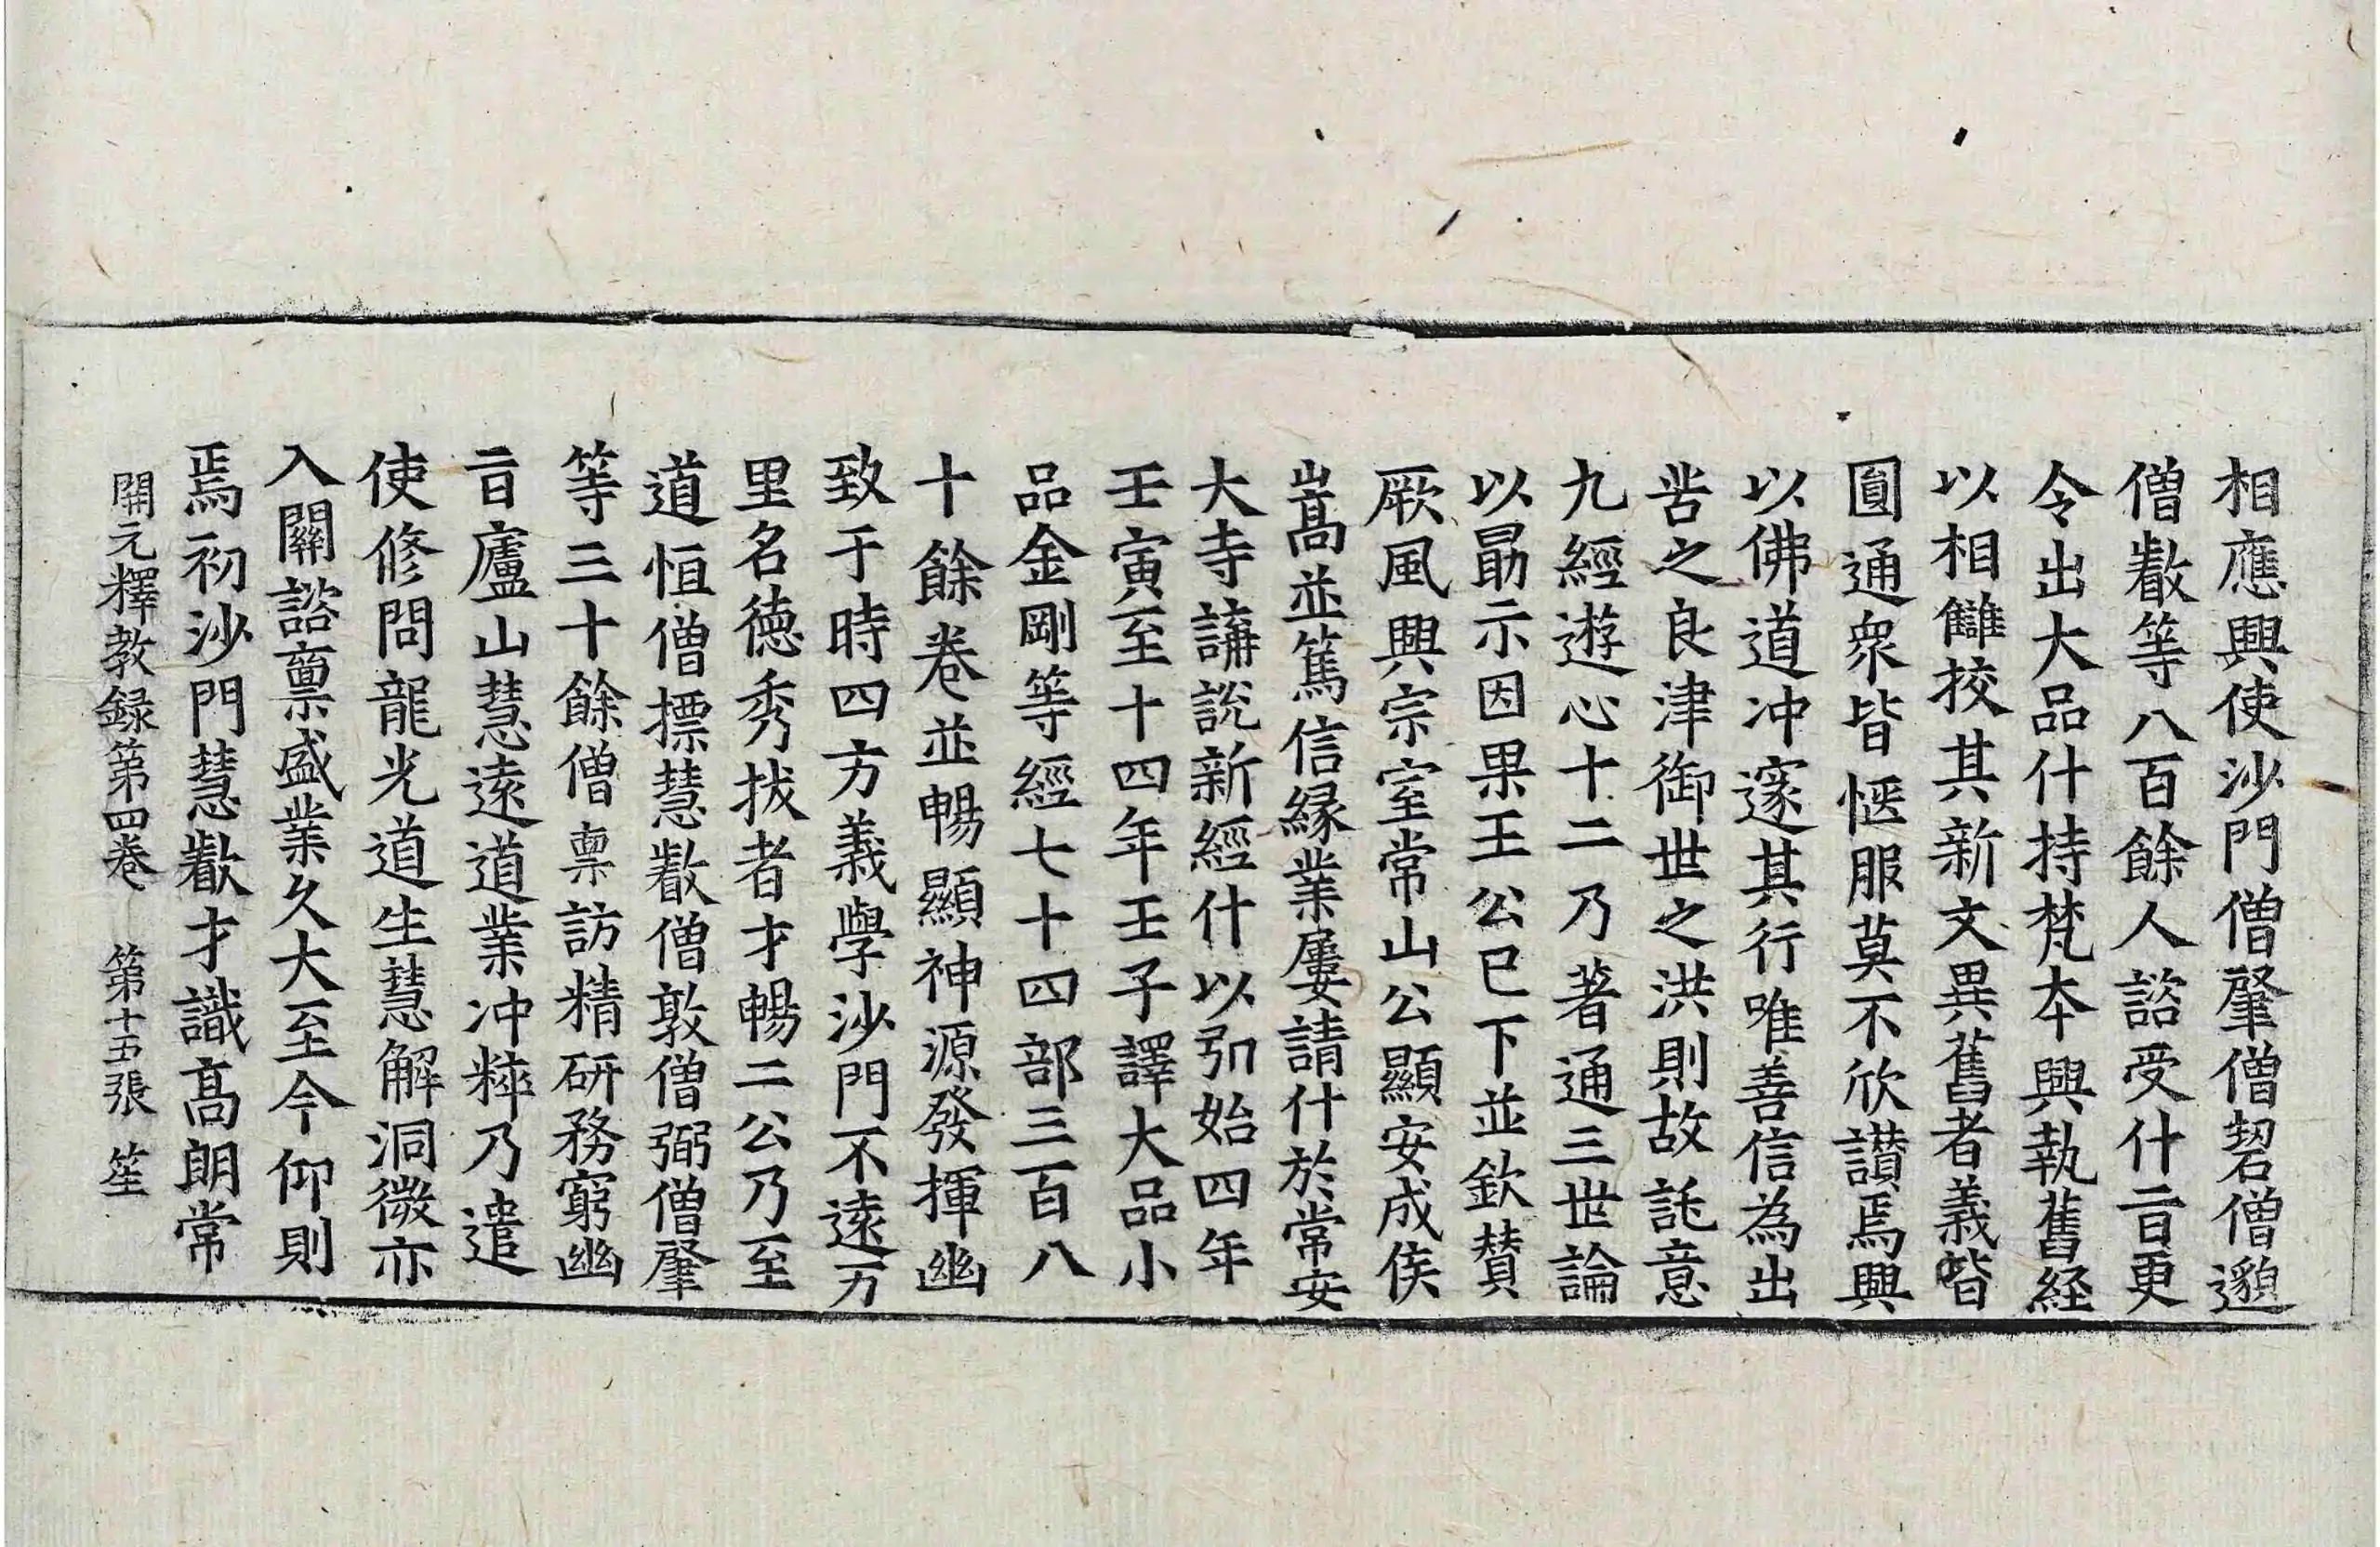 相應興使沙門僧肇僧䂮僧邈
僧叡等八百餘人諮受什㫖更
令出大品什持梵夲興執舊経
以相讎挍其新文異舊者義皆
圓通衆皆愜服莫不欣讃焉興
以佛道冲邃其行唯善信為出
苦之良津御世之洪則故託意
九經遊心十二乃著通三世論
以勗示因果王公已下並欽賛
厥風興宗室常山公顯安成侯
嵩並篤信緣業屢請什於常安
大寺講說新經什以弘始四年
壬寅至十四年壬子譯大品小
品金剛等經七十四部三百八
十餘卷並暢顯神源發揮幽
致于時四方義學沙門不遠万
里名德秀拔者才暢二公乃至
道恒僧摽慧叡僧敦僧弼僧肇
等三十餘僧禀訪精研務窮幽
㫖廬山慧遠道業冲粹乃遣
使修問龍光道生慧解洞微亦
入關諮禀盛業久大至今仰則
焉初沙門慧叡才識髙朗常
開元釋教録第四卷　第十五張　笙